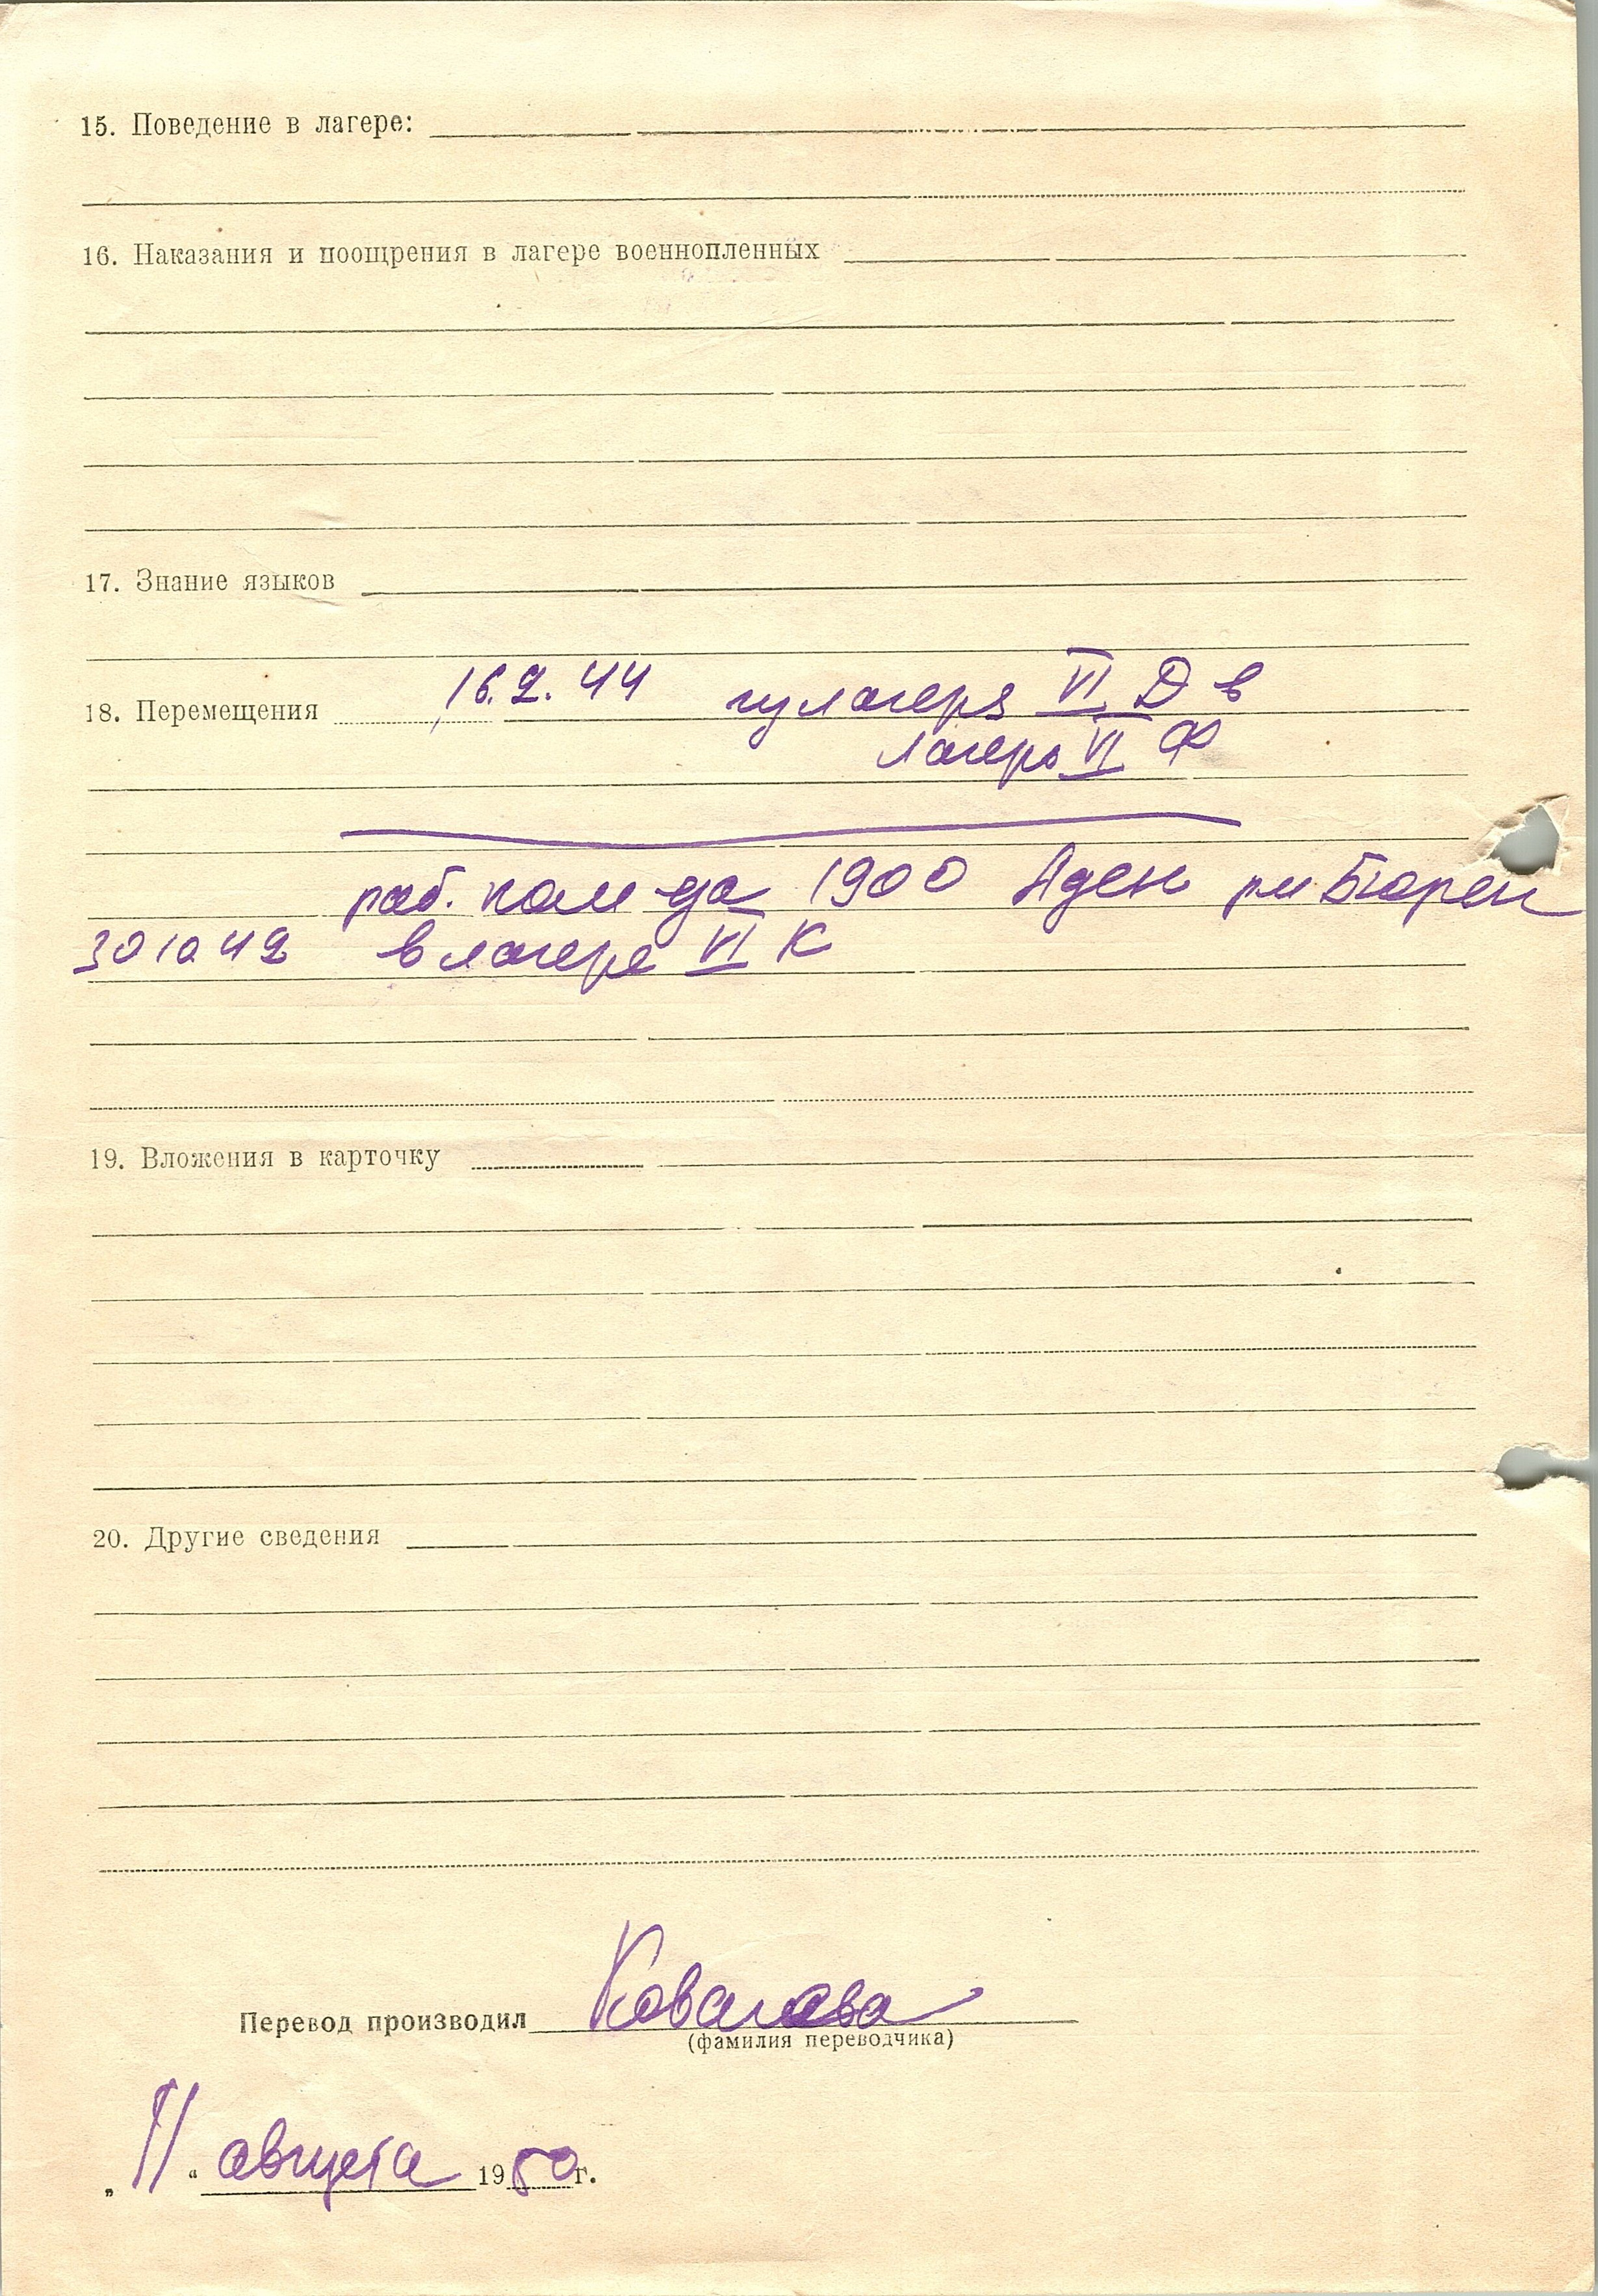 15. Поведение в лагере:
16. Наказания и поощрения в лагере военнопленных
17. Знание языков
18. Перемещения 16.2.44 из лагеря VI Д в
лагерь VI Ф
раб. ком-да 1900 Аден Бюрен
30 10 42 в лагере VI К
19. Вложения в карточку
20. Другие сведения
Перевод производил Ковалева
(фамилия переводчика)
„11“ августа 1950г.